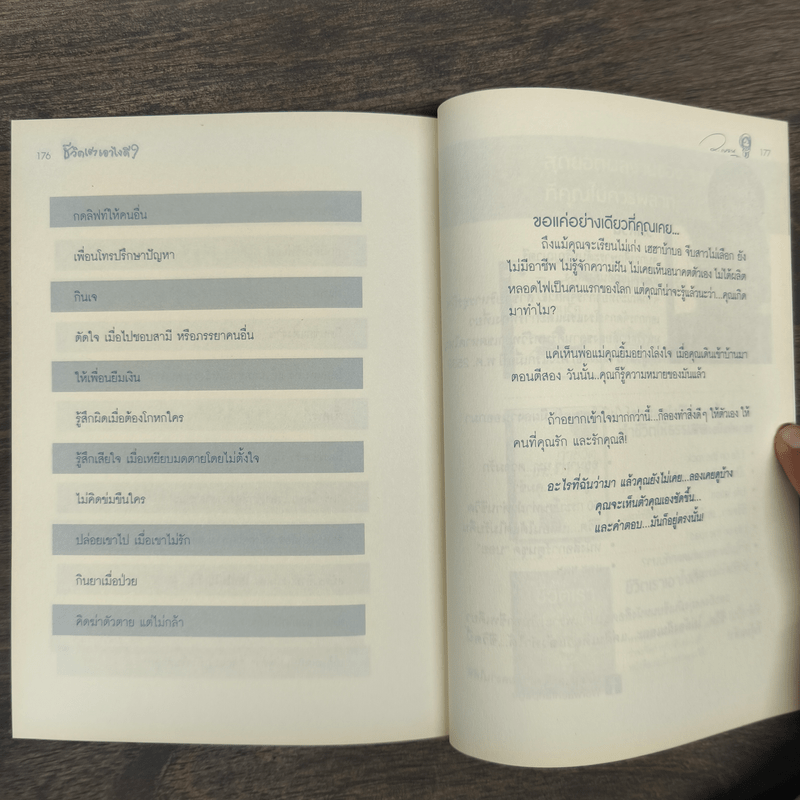 176 ชีวิตเราเอาไงดี?
กดลิฟท์ให้คนอื่น
เพื่อนโทรปรึกษาปัญหา
กินเจ
ตัดใจ เมื่อไปชอบสามี หรือภรรยาคนอื่น
ให้เพื่อนยืมเงิน
รู้สึกผิดเมื่อต้องโกหกใคร
รู้สึกเสียใจ เมื่อเหยียบมดตายโดยไม่ตั้งใจ
ไม่คิดข่มขืนใคร
ปล่อยเขาไป เมื่อเขาไม่รัก
กินยาเมื่อป่วย
คิดฆ่าตัวตาย แต่ไม่กล้า
177
ขอแค่อย่างเดียวที่คุณเคย...
ถึงแม้คุณจะเรียนไม่เก่ง เฮฮาบ้าบอ จีบสาวไม่เลือก ยัง
ไม่มีอาชีพ ไม่รู้จักความฝัน ไม่เคยเห็นอนาคตตัวเอง ไม่ได้ผลิต
หลอดไฟเป็นคนแรกของโลก แต่คุณก็น่าจะรู้แล้วนะว่า...คุณเกิด
มาทำไม?
แค่เห็นพ่อแม่คุณยิ้มอย่างโล่งใจ เมื่อคุณเดินเข้าบ้านมา
ตอนตีสอง วันนั้น..คุณก็รู้ความหมายของมันแล้ว
ถ้าอยากเข้าใจมากกว่านี้...ก็ลองทำสิ่งดีๆ ให้ตัวเอง ให้
คนที่คุณรัก และรักคุณสิ!
อะไรที่ฉันว่ามา แล้วคุณยังไม่เคย...ลองเคยดูบ้าง
คุณจะเห็นตัวคุณเองชัดขึ้น...
และคำตอบ...มันก็อยู่ตรงนั้น!